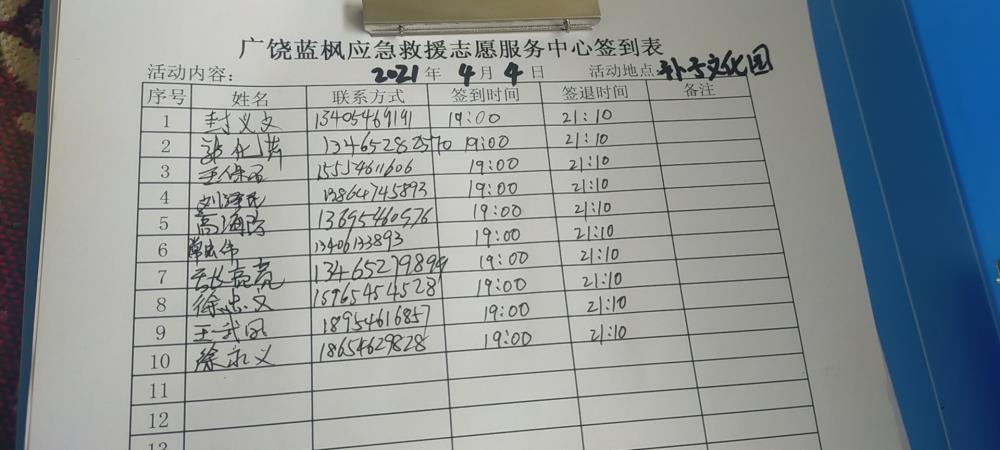 广饶蓝枫应急救援志愿服务中心签到表
活动内容： 2021年 4月 4日 活动地点 孙子文化园
序号 姓名 联系方式 签到时间 签退时间 备注
1 封义文 13405469191 19:00 21:10
2 13465282570 19:00 21:10
3 王保 15554611606 19:00 21:10
4 刘泽民 13864745893 19:00 21:10
5 高海 13695460976 19:00 21:10
6 13406133893 19:00 21:10
7 张亮亮 13465279899 19:00 21:10
8 徐忠文 15965454528 19:00 21:10
9 王武 18954616857 19:00 21:10
10 徐永义 18654629828 19:00 21:10
11
12
13